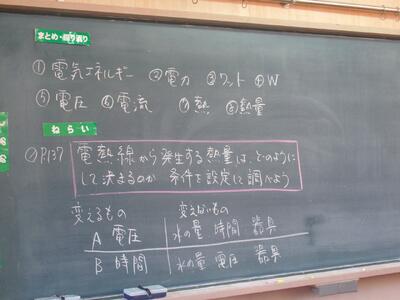 まとめ・振り返り
①電気エネルギー ②電力 ③ワット ④W
⑤電圧 ⑥電流 ⑦熱 ⑧熱量
ねらい
P.137
電熱線から発生する熱量は、どのように
して決まるのか 条件を設定して調べよう
変えるもの 変えないもの
A 電圧 水の量 時間 器具
B 時間 水の量 電圧 器具